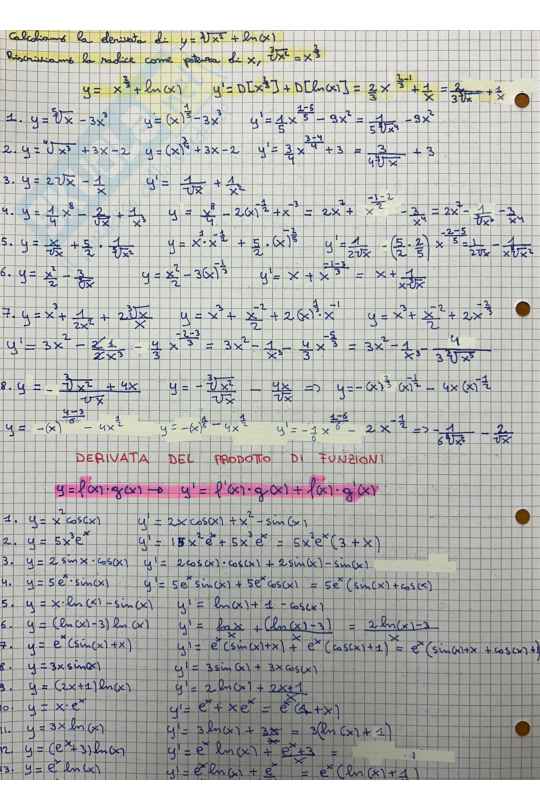 Calcoliamo la derivata di y = ∛x² + ln(x)
Riscriviamo la radice come potenza di x, ∛x² = x^(2/3)
y = x^(2/3) + ln(x) y' = D[x^(2/3)] + D[ln(x)] = 2/3 x^(2/3-1) + 1/x = 2/(3∛x) + 1/x
1. y = ⁵√x - 3x³ y = (x)^(1/5) - 3x³ y' = 1/5 x^((1-5)/5) - 9x² = 1/(5 ⁵√x⁴) - 9x²
2. y = ⁴√x³ + 3x - 2 y = (x)^(3/4) + 3x - 2 y' = 3/4 x^((3-4)/4) + 3 = 3/(4 ⁴√x) + 3
3. y = 2√x - 1/x y' = 1/√x + 1/x²
4. y = 1/4 x⁸ - 2/√x + 1/x³ y = x⁸/4 - 2(x)^(-1/2) + x^(-3) = 2x⁷ + x^((-1-2)/2) - 3/x⁴ = 2x⁷ - 1/√x³ - 3/x⁴
5. y = x/√x + 5/2 · 1/⁵√x² y = x¹·x^(-1/2) + 5/2 · (x)^(-2/5) y' = 1/(2√x) - (5/2 · 2/5) x^((-2-5)/5) = 1/(2√x) - 1/(x ⁵√x²)
6. y = x²/2 - 3/∛x y = x²/2 - 3(x)^(-1/3) y' = x + x^((-1-3)/3) = x + 1/(x ∛x)
7. y = x³ + 1/(2x²) + 2∛x/x y = x³ + x^(-2)/2 + 2(x)^(1/3)·x^(-1) y = x³ + x^(-2)/2 + 2x^(-2/3)
y' = 3x² - 2/2 1/x³ - 4/3 x^((-2-3)/3) = 3x² - 1/x³ - 4/3 x^(-5/3) = 3x² - 1/x³ - 4/(3 ∛x⁵)
8. y = - (∛x² + 4x)/√x y = - ∛x²/√x - 4x/√x => y = -(x)^(2/3) (x)^(-1/2) - 4x(x)^(-1/2)
y = -(x)^((4-3)/6) - 4x^(1/2) y = -(x)^(1/6) - 4x^(1/2) y' = -1/6 x^((1-6)/6) - 2x^(-1/2) => -1/(6 ⁶√x⁵) - 2/√x
DERIVATA DEL PRODOTTO DI FUNZIONI
y = f(x)·g(x) → y' = f'(x)·g(x) + f(x)·g'(x)
1. y = x² cos(x) y' = 2x cos(x) + x² - sin(x)
2. y = 5x³eˣ y' = 15x²eˣ + 5x³eˣ = 5x²eˣ(3 + x)
3. y = 2 sinx · cos(x) y' = 2cos(x) · cos(x) + 2sin(x) - sin(x)
4. y = 5eˣ · sin(x) y' = 5eˣ sin(x) + 5eˣ cos(x) = 5eˣ (sin(x) + cos(x)
5. y = x · ln(x) - sin(x) y' = ln(x) + 1 - cos(x)
6. y = (ln(x) - 3) ln(x) y' = lnx/x + (ln(x) - 3)/x = (2 ln(x) - 3)/x
7. y = eˣ (sin(x) + x) y' = eˣ (sin(x) + x) + eˣ (cos(x) + 1) = eˣ (sin(x) + x + cos(x) + 1
8. y = 3x sin(x) y' = 3sin(x) + 3x cos(x)
9. y = (2x + 1) ln(x) y' = 2 ln(x) + (2x + 1)/x
10. y = x · eˣ y' = eˣ + x eˣ = eˣ (1 + x)
11. y = 3x ln(x) y' = 3 ln(x) + 3x/x = 3(ln(x) + 1)
12. y = (eˣ + 3) ln(x) y' = eˣ ln(x) + (eˣ + 3)/x =
13. y = eˣ ln(x) y' = eˣ ln(x) + eˣ/x = eˣ (ln(x) + 1)